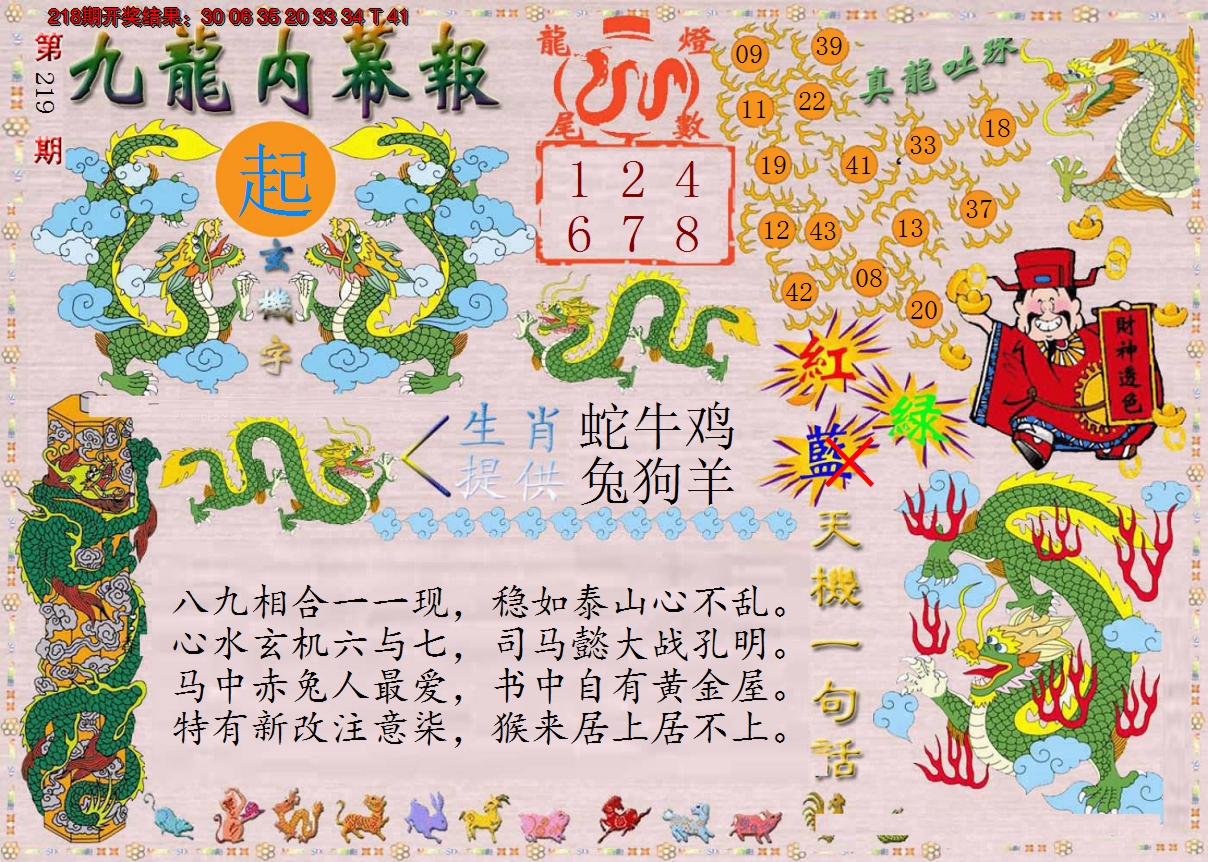 218期开奖结果：30 06 35 20 33 34 T 41
第219期
九龍内幕報
起
玄機字
龍燈
尾數
1 2 4
6 7 8
真龍吐珠
09 39
11 22
33 18
19 41
37
12 43 13
42 08
20
紅
綠
藍
財神透色
生肖 蛇牛鸡
提供 兔狗羊
天機一句話
八九相合一一现，稳如泰山心不乱。
心水玄机六与七，司马懿大战孔明。
马中赤兔人最爱，书中自有黄金屋。
特有新改注意柒，猴来居上居不上。